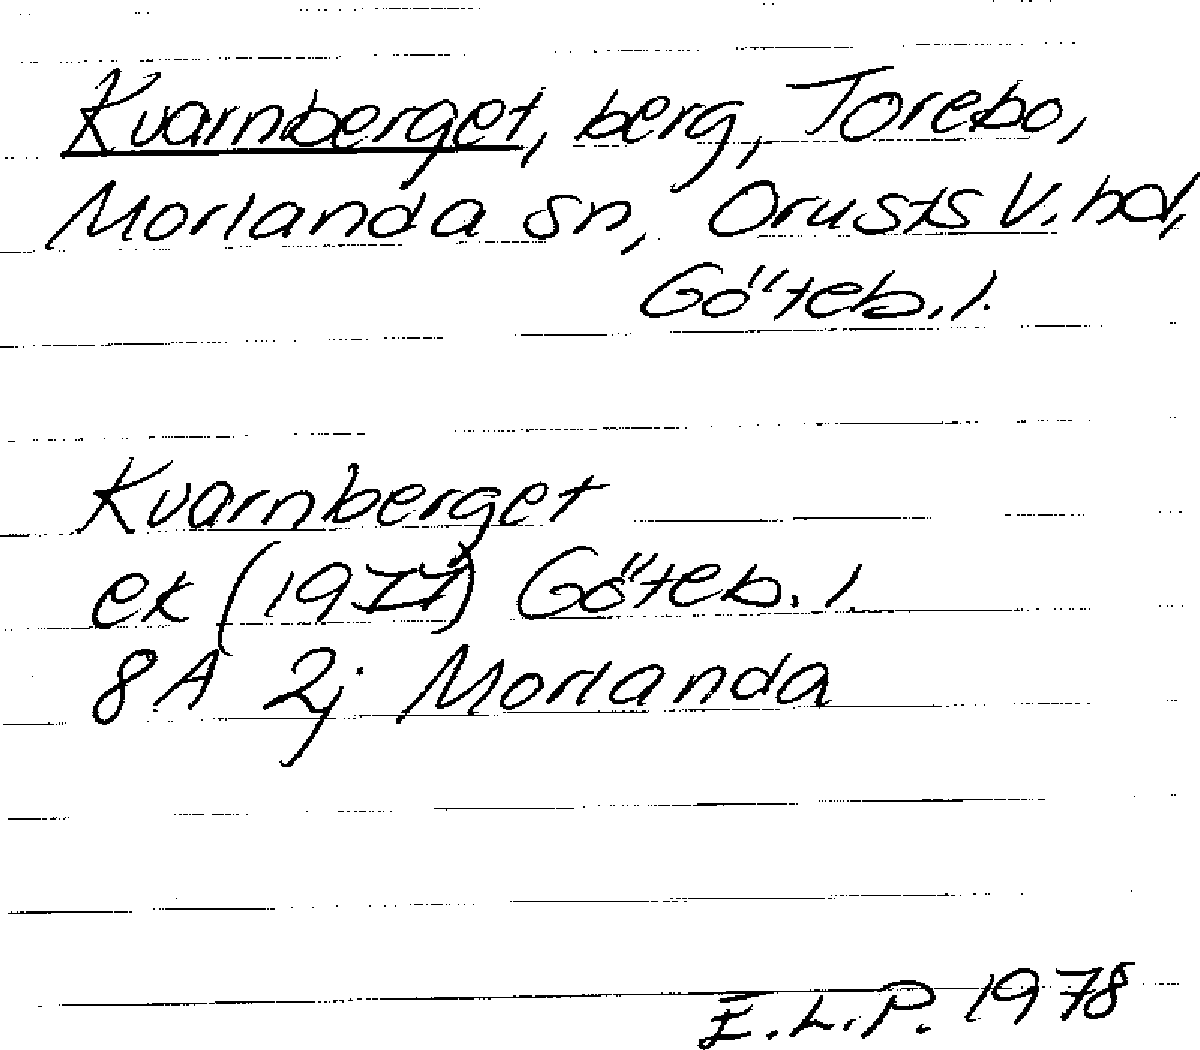 Kvarnberget, berg, Torebo,
Morlanda sn, Orusts V. hd,
Göteb. l.
Kvarnberget
ek (1977) Göteb. l.
8A 2j Morlanda
E.L.P. 1978